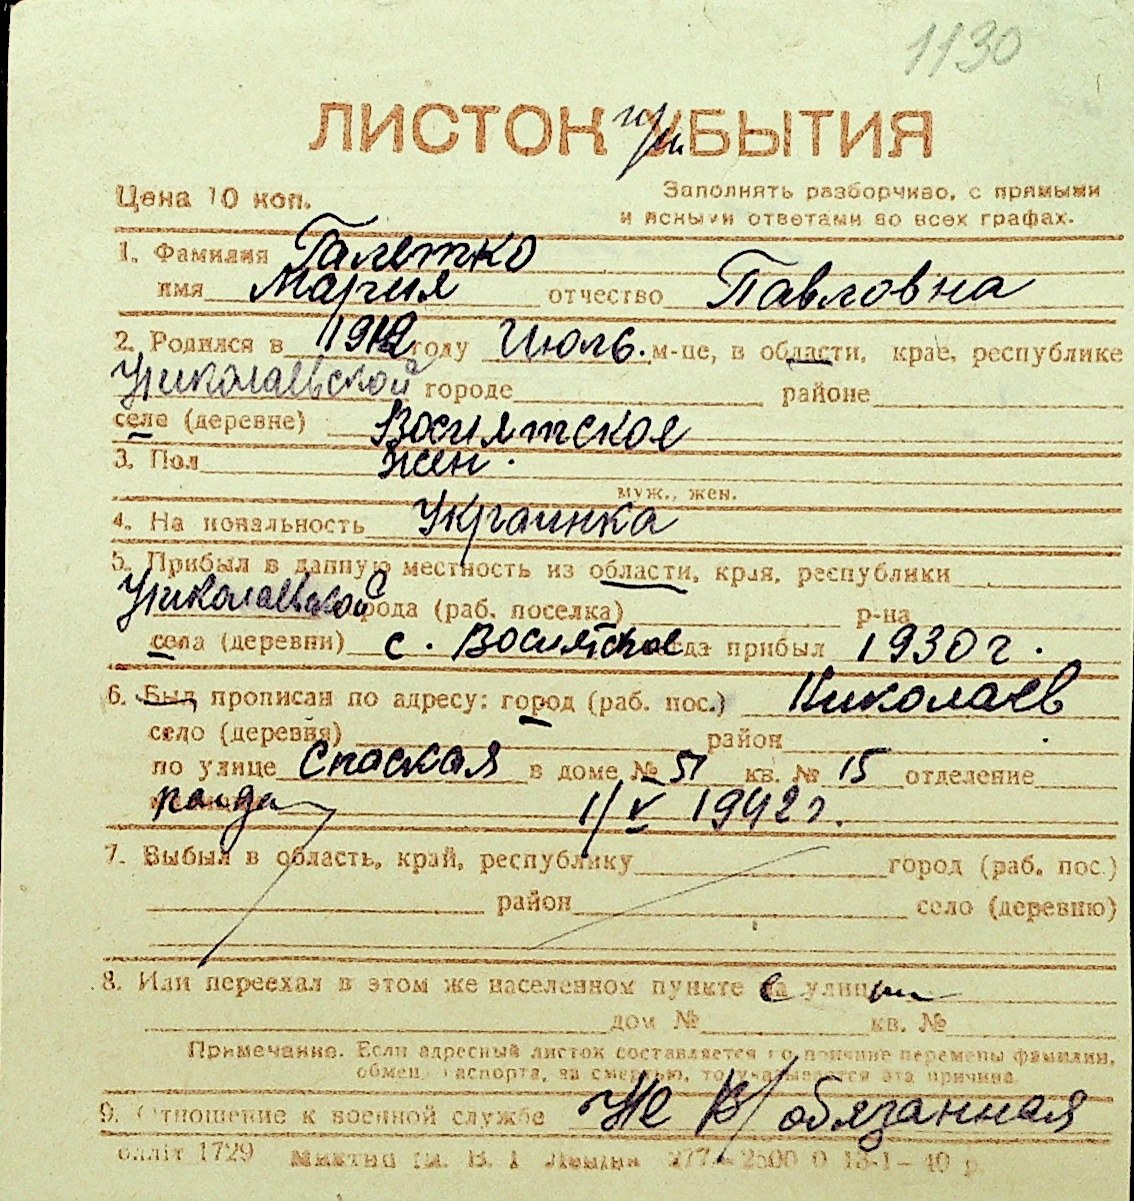 1130
ЛИСТОК при УБЫТИЯ
Цена 10 коп.
Заполнять разборчиво, с прямыми
и ясными ответами во всех графах.
1. Фамилия Галетко
имя Мария отчество Павловна
2. Родился в 1912 году Июль. м-це, в области, крае, республике
Николаевской городе районе
села (деревне) Восиятское
3. Пол жен.
муж., жен.
4. На иональность Украинка
5. Прибыл в данную местность из области, края, республики
Николаевской города (раб. поселка) р-на
села (деревни) с. Восиятское когда прибыл 1930 г.
6. Был прописан по адресу: город (раб. пос.) Николаев
село (деревня) район
по улице Спаская в доме № 51 кв. № 15 отделение
1/V 1942 г.
7. Выбыл в область, край, республику город (раб. пос.)
район село (деревню)
8. Или переехал в этом же населенном пункте с улицы
дом № кв. №
Примечание. Если адресный листок составляется по причине перемены фамилии,
обмен паспорта, за смертью, то указывается эта причина
9. Отношение к военной службе Не в/обязанная
облліт 1729 277 – 2500 0 13-1 – 40 р.